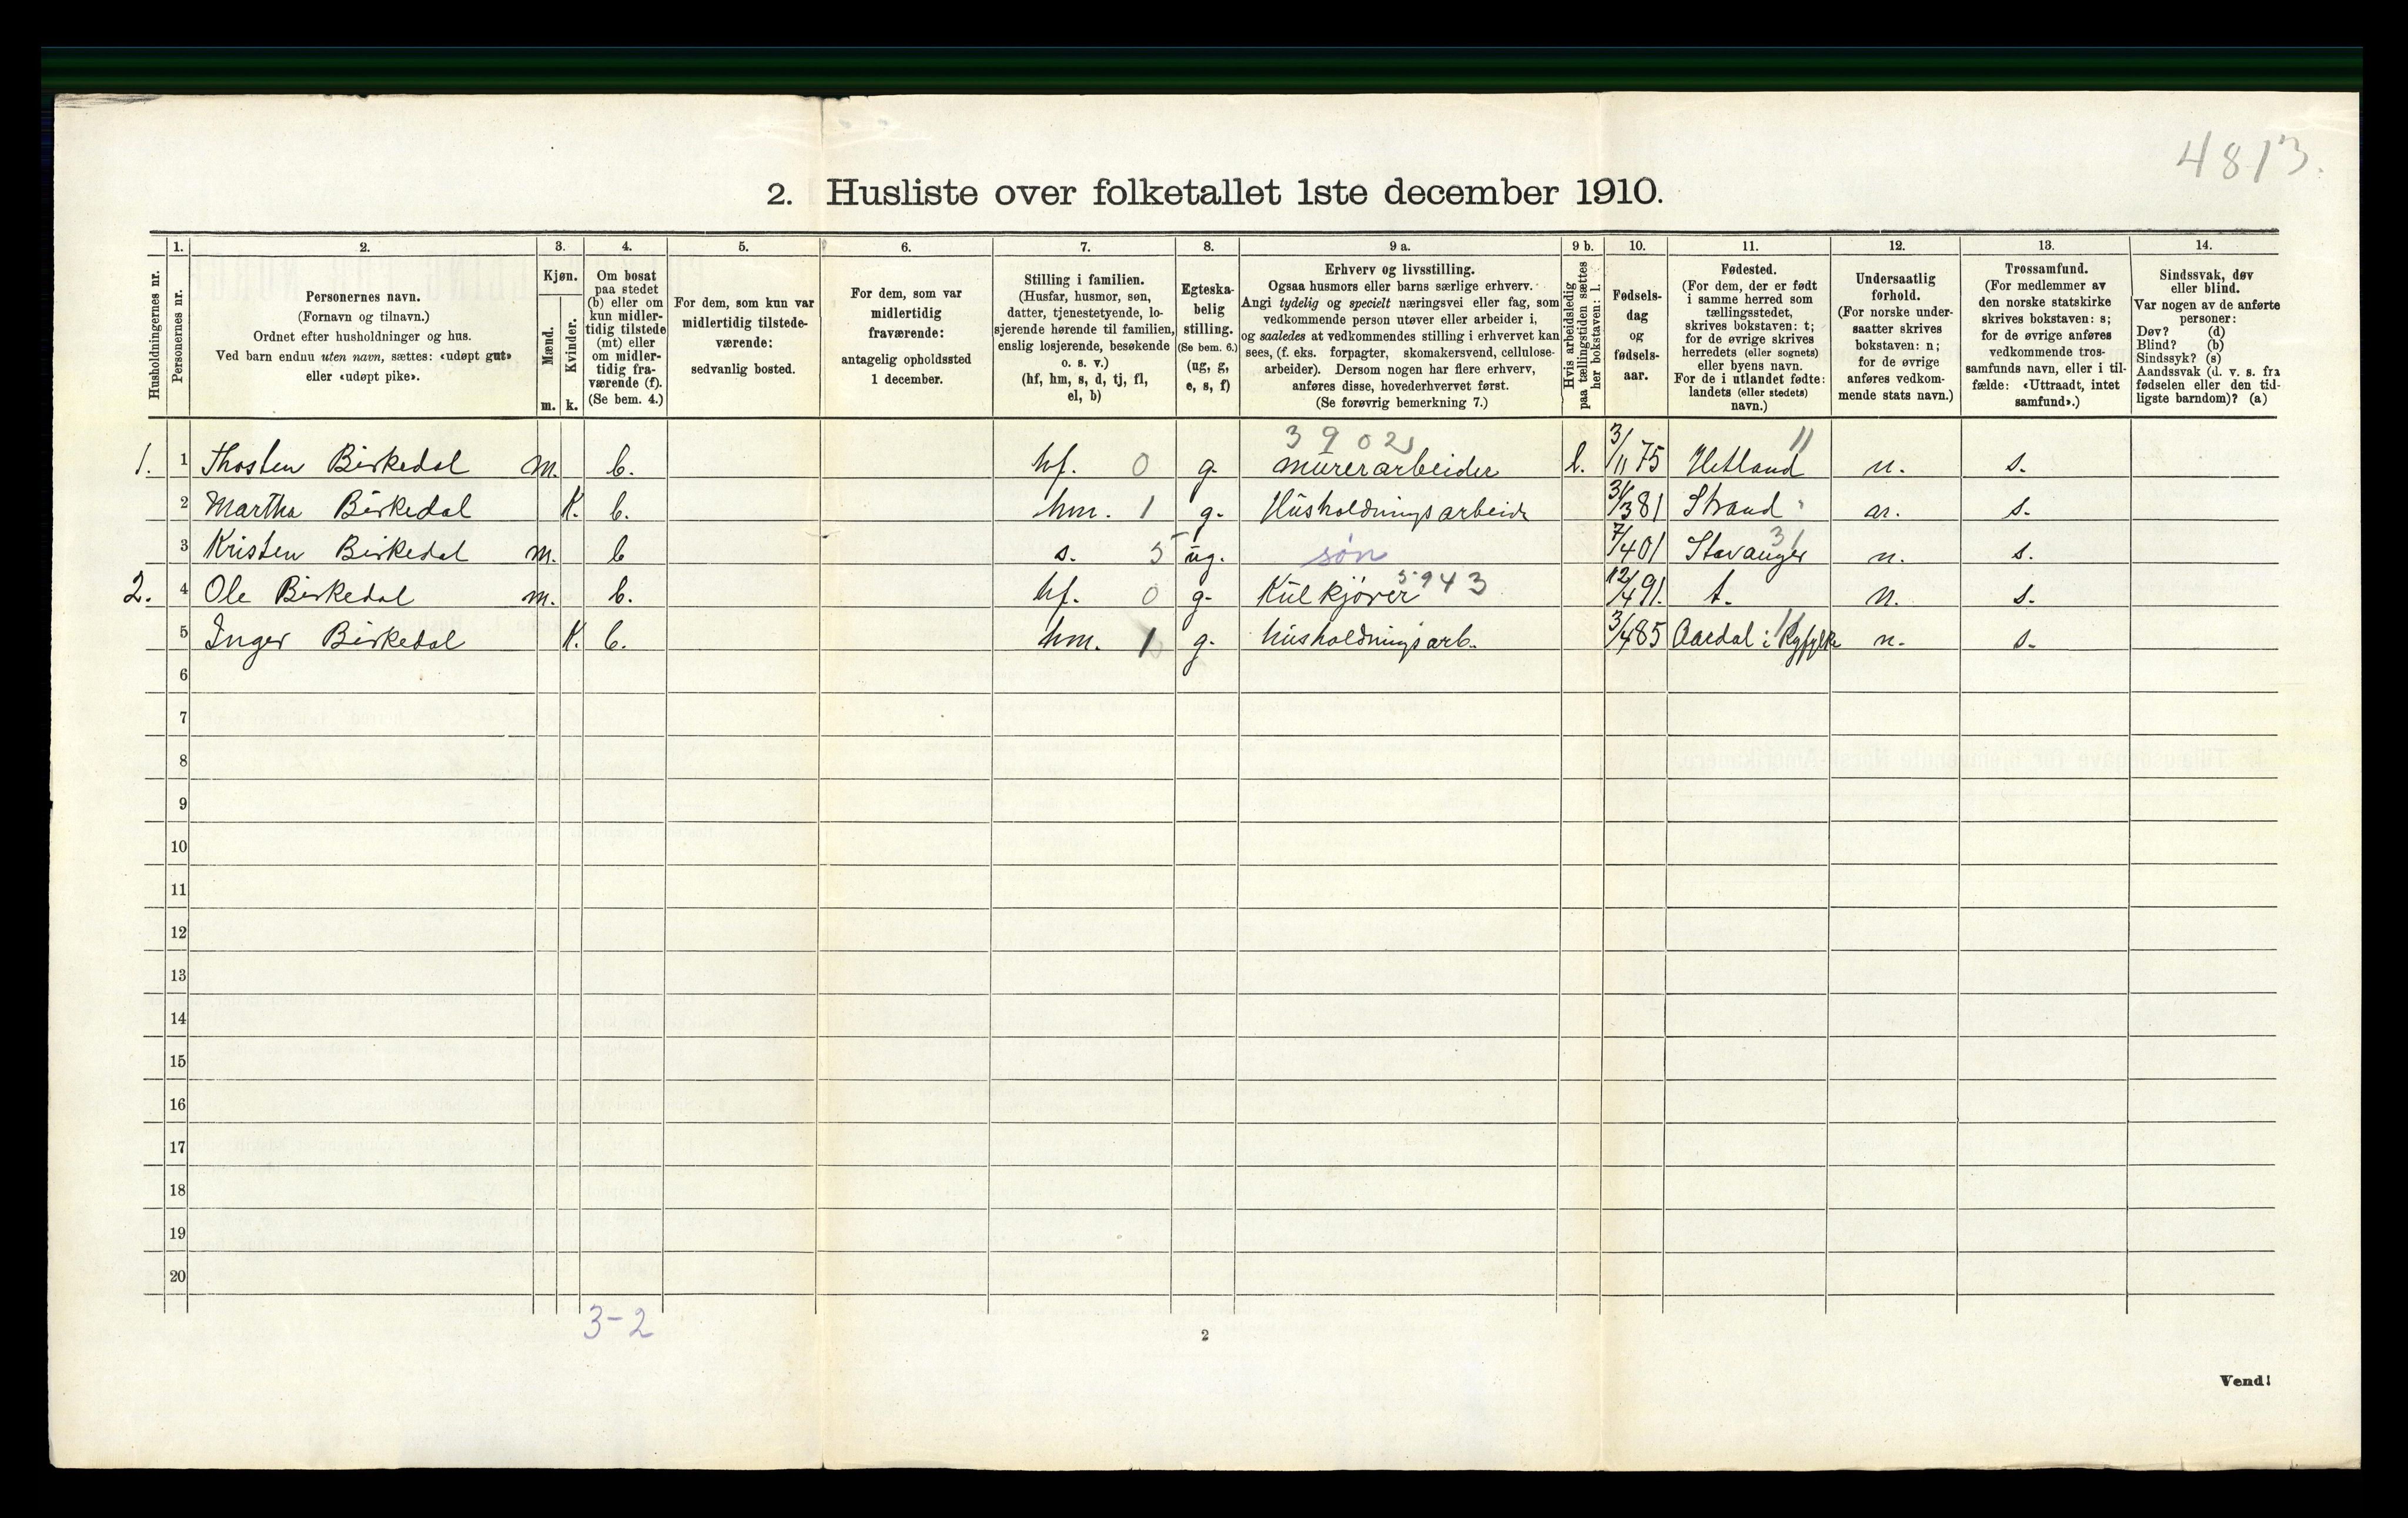 4813.
2. Husliste over folketallet 1ste december 1910.
1. 2. 3. 4. 5. 6. 7. 8. 9 a. 9 b. 10. 11. 12. 13. 14.
Husholdningernes nr.
Personernes nr.
Personernes navn.
(Fornavn og tilnavn.)
Ordnet efter husholdninger og hus.
Ved barn endnu uten navn, sættes: «udøpt gut»
eller «udøpt pike».
Kjøn.
Mænd.
Kvinder.
m. k.
Om bosat
paa stedet
(b) eller om
kun midler-
tidig tilstede
(mt) eller
om midler-
tidig fra-
værende (f).
(Se bem. 4.)
For dem, som kun var
midlertidig tilstede-
værende:
sedvanlig bosted.
For dem, som var
midlertidig
fraværende:
antagelig opholdssted
1 december.
Stilling i familien.
(Husfar, husmor, søn,
datter, tjenestetyende, lo-
sjerende hørende til familien,
enslig losjerende, besøkende
o. s. v.)
(hf, hm, s, d, tj, fl,
el, b)
Egteska-
belig
stilling.
(Se bem. 6.)
(ug, g,
e, s, f)
Erhverv og livsstilling.
Ogsaa husmors eller barns særlige erhverv.
Angi tydelig og specielt næringsvei eller fag, som
vedkommende person utøver eller arbeider i,
og saaledes at vedkommendes stilling i erhvervet kan
sees, (f. eks. forpagter, skomakersvend, cellulose-
arbeider). Dersom nogen har flere erhverv,
anføres disse, hovederhvervet først.
(Se forøvrig bemerkning 7.)
Hvis arbeidsledig
paa tællingstiden sættes
her bokstaven: l.
Fødsels-
dag
og
fødsels-
aar.
Fødested.
(For dem, der er født
i samme herred som
tællingsstedet,
skrives bokstaven: t;
for de øvrige skrives
herredets (eller sognets)
eller byens navn.
For de i utlandet fødte:
landets (eller stedets)
navn.)
Undersaatlig
forhold.
(For norske under-
saatter skrives
bokstaven: n;
for de øvrige
anføres vedkom-
mende stats navn.)
Trossamfund.
(For medlemmer av
den norske statskirke
skrives bokstaven: s;
for de øvrige anføres
vedkommende tros-
samfunds navn, eller i til-
fælde: «Uttraadt, intet
samfund».)
Sindssvak, døv
eller blind.
Var nogen av de anførte
personer:
Døv? (d)
Blind? (b)
Sindssyk? (s)
Aandssvak (d. v. s. fra
fødselen eller den tid-
ligste barndom)? (a)
3902 11
1. 1 Thosten Birkedal m. b. hf. 0 g. murerarbeider l. 3/11 75 Hetland n. s.
2 Martha Birkedal K. b. hm. 1 g. Husholdningsarbeide 31/3 81 Strand n. s.
3 Kristen Birkedal m. b s. 5 ug. søn 7/4 01 Stavanger 31 n. s.
2. 4 Ole Birkedal m. b. hf. 0 g. Kulkjører 5943 12/4 91. t. n. s.
5 Inger Birkedal K. b. hm. 1 g. husholdningsarb. 3/4 85 Aardal i Ryfylke 11 n. s.
6
7
8
9
10
11
12
13
14
15
16
17
18
19
20
3-2
2
Vend!